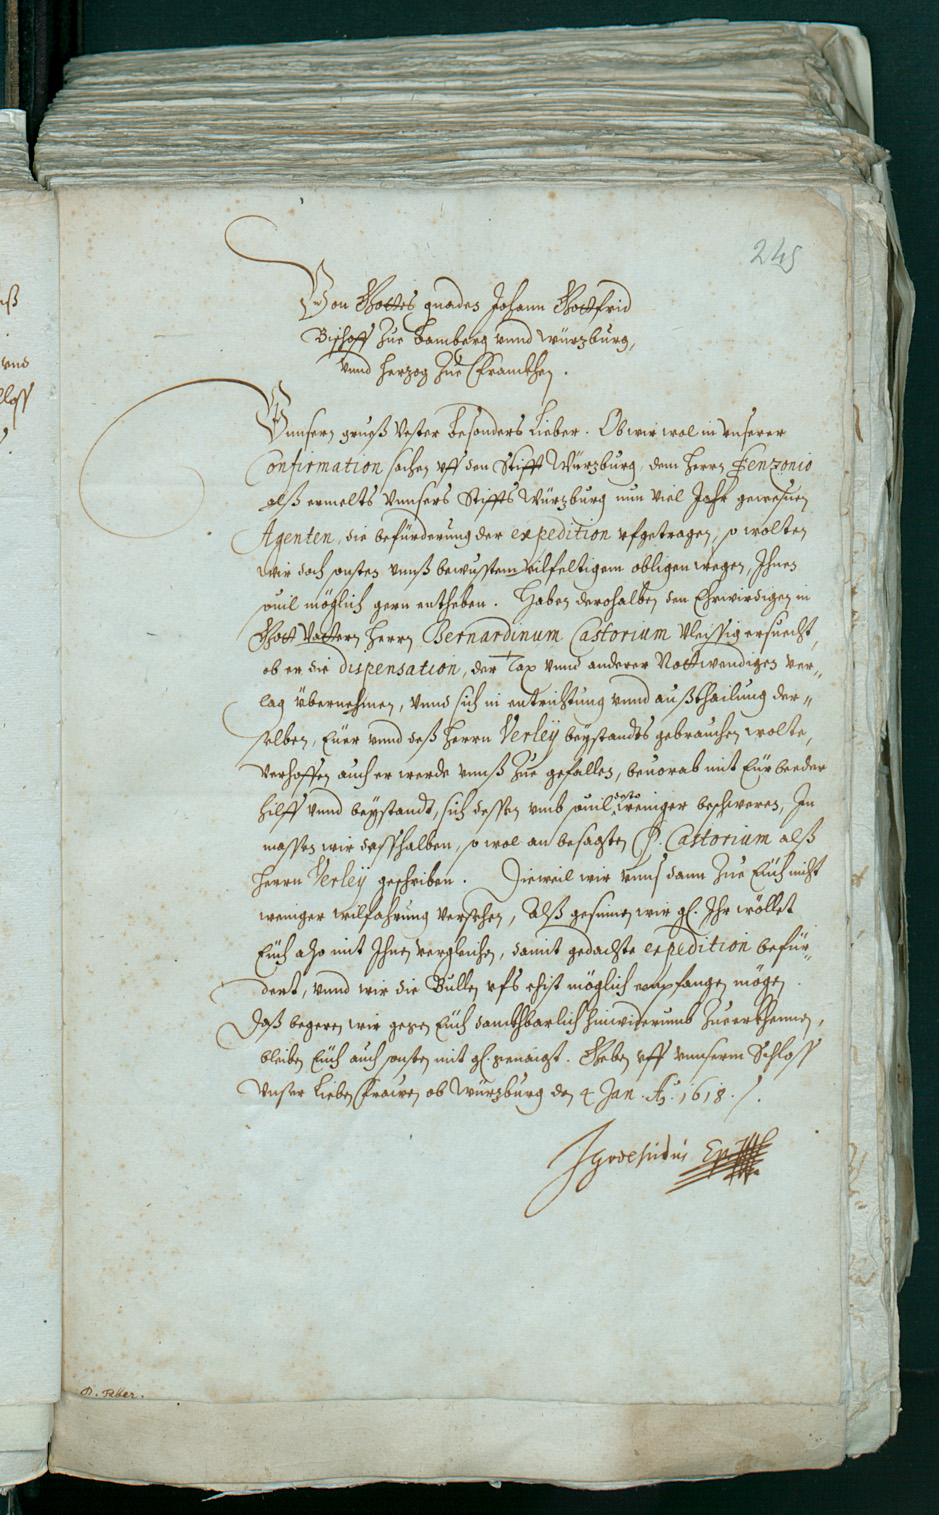 245
Von Gottes gnaden Johann Gottfrid
Bischoff zue Bamberg vnnd Würzburg,
vnnd Herzog zue Franckhen.
Vnnsern grueß Vester Besonders Lieber. Ob wir wol in vnserer
Confirmation sachen vff den Stifft Würzburg, dem Herrn Fenzonio
alß ermelts Vnnsers Stiffts Würzburg nun viel Jahr gewesnen
Agenten, die befürderung der expedition vfgetragen, so wolten
wir doch sonsten vnnß bewusstem vilfeltigem obligen wegen, Ihnen
souil möglich gern entheben. Haben derohalben den Ehrwirdigen in
Gott Vattern Herrn Bernardinum Castorium Vleissig ersuecht,
ob er die dispensation, der Tax vnnd anderer Nottwendigen ver-
lag übernehmen, vnnd sich in entrichtung vnnd außthailung der-
selben, Euer vnnd deß Herrn Verleÿ beystandts gebrauchen wolte,
Verhoffen auch er werde vnnß zue gefallen, beuorab mit Eur beeder
hilff vnnd beystandt, sich dessen vmb souil desto weniger beschweren, In
massen wir desshalben, so wol an besagten P. Castorium alß
Herrn Verleÿ geschriben. Dieweil wir vnnß dann zue Euch nicht
weniger wilfahrung versehen, Alß gesinnen wir gl. Ihr wöllet
Euch also mit Ihnen vergleichen, damit gedachte expedition befür-
dert, vnnd wir die Bullen vfs ehist möglich empfangen mögen.
Daß begeren wir gegen Euch danckhbarlich hinwiderumb zuerkhennen,
bleiben Euch auch sonsten mit gl. genaigt. Geben vff vnnserm Schloss
Vnser Lieben Frawen ob Würzburg den 4 Jan. Ao. 1618.
D. Faber.